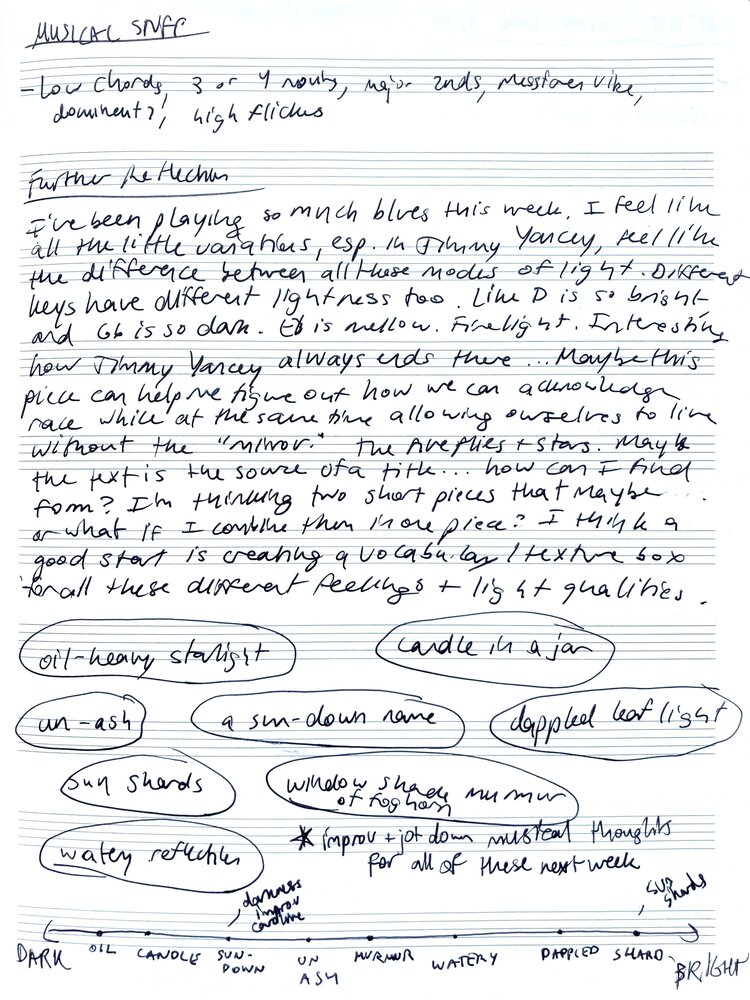 MUSICAL STUFF
- Low chords, 3 or 4 notes, major 2nds, Messiaen vibe,
dominant 7, high flicks
Further Reflection
I've been playing so much blues this week. I feel like
all the little variations, esp. in Jimmy Yancey, feel like
the difference between all these modes of light. Different
keys have different lightness too. Like D is so bright
and Gb is so dark. Eb is mellow. Firelight. Interesting
how Jimmy Yancey always ends there... Maybe this
piece can help me figure out how we can acknowledge
race while at the same time allowing ourselves to live
without the "mirror." The fireflies + stars. Maybe
the text is the source of a title... how can I find
form? I'm thinking two short pieces that maybe...
or what if I combine them in one piece? I think a
good start is creating a vocabulary/texture box
for all these different feelings + light qualities.
oil-heavy starlight
candle in a jar
un-ash
a sun-down name
dappled leaf light
sun shards
window shade murmur
of foghorn
watery reflection
* improv + jot down musical thoughts
for all of these next week
darkness
improv
sun
shards
DARK OIL CANDLE SUN-DOWN UN ASH MURMUR WATERY DAPPLED SHARD BRIGHT